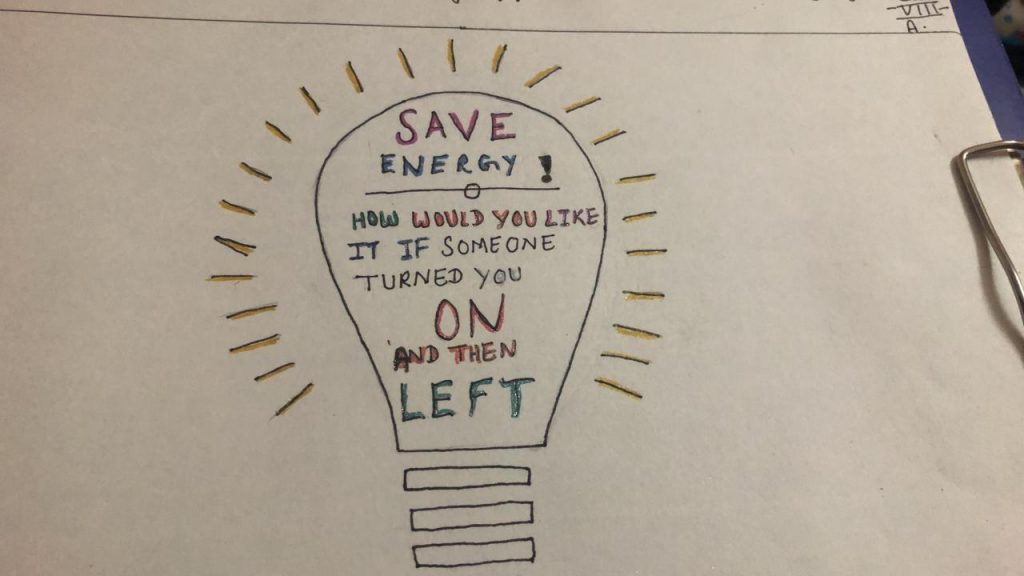 VIII
A.
SAVE
ENERGY !
HOW WOULD YOU LIKE
IT IF SOMEONE
TURNED YOU
ON
AND THEN
LEFT